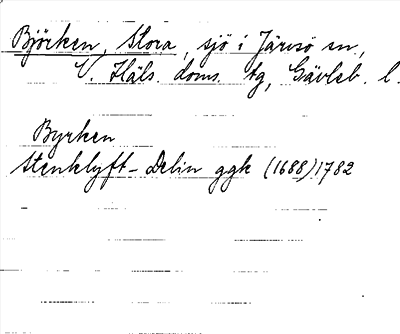 Björken, Stora, sjö i Järvsö sn,
V. Häls. doms. tg, Gävleb. l.
Byrken
Stenklyft-Delin ggk (1688) 1782